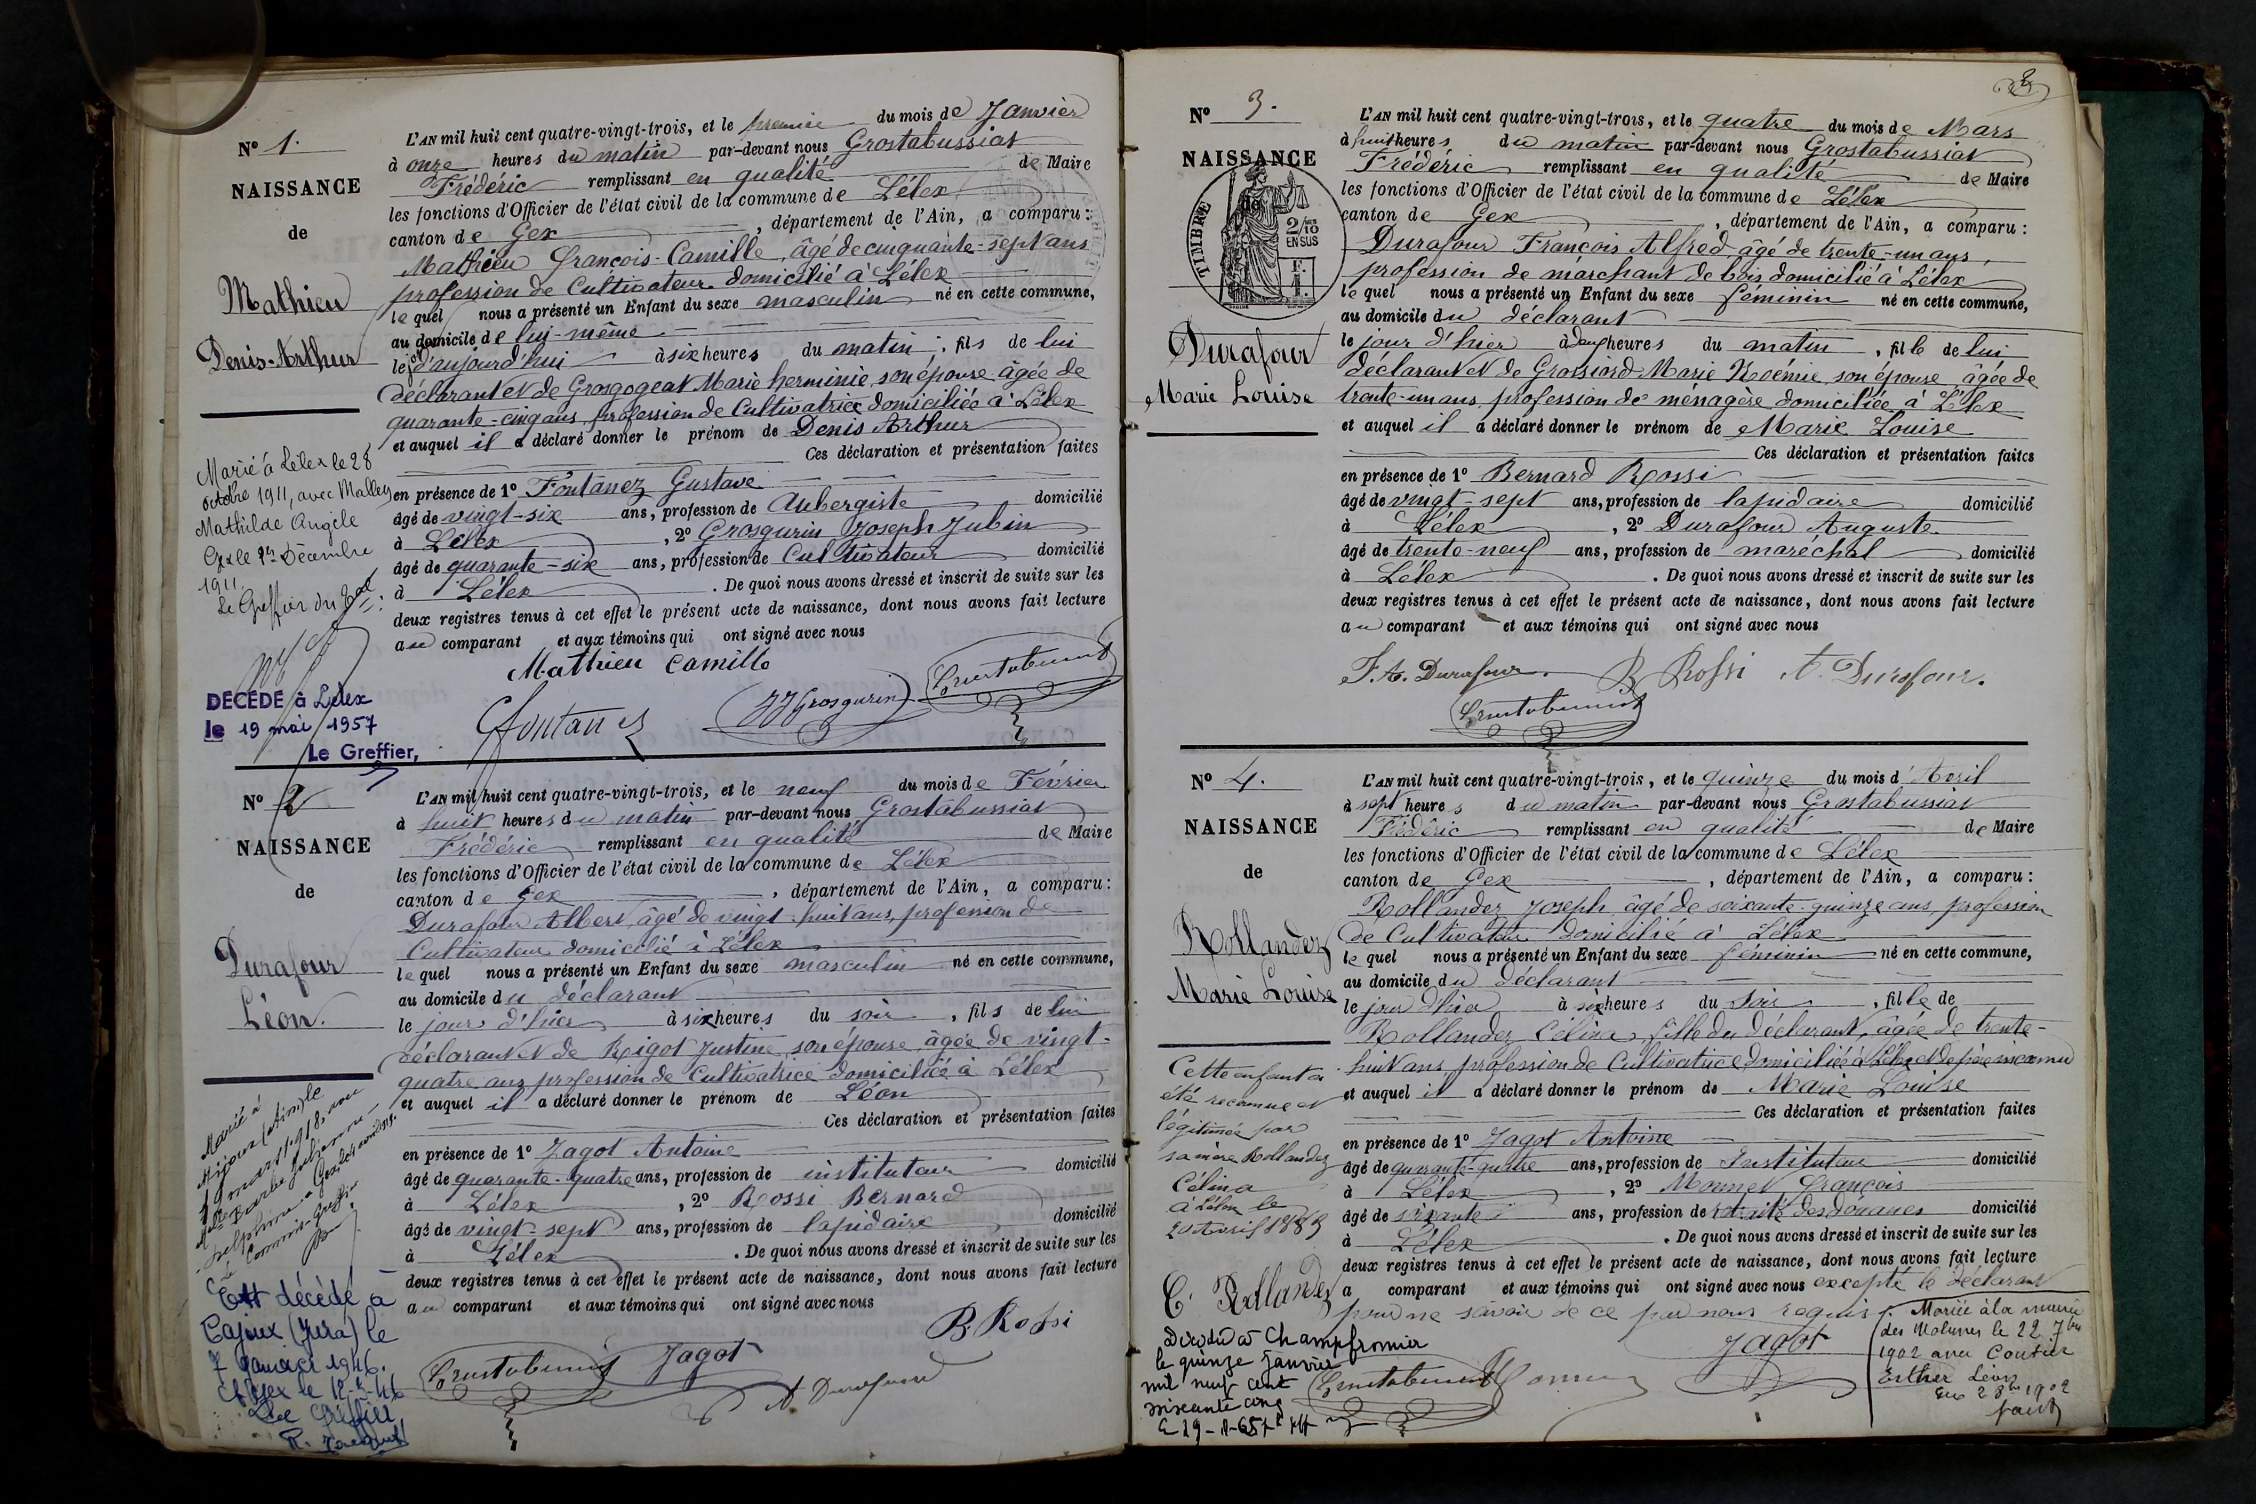 N° 1.
NAISSANCE
de
Mathieu
Denis-Arthur
Marié à Lélex le 28
octobre 1911, avec Malley
Mathilde Angèle
Gex le 1er Décembre
1911
Le Greffier du
DÉCÉDÉ à Lélex
le 19 mai 1957
Le Greffier,
L'AN mil huit cent quatre-vingt-trois, et le premier du mois de Janvier
à onze heures du matin par-devant nous Grostabussiat
Frédéric remplissant en qualité de Maire
les fonctions d'Officier de l'état civil de la commune de Lélex
canton de Gex, département de l'Ain, a comparu :
Mathieu François-Camille, âgé de cinquante-sept ans
profession de Cultivateur domicilié à Lélex
lequel nous a présenté un Enfant du sexe masculin né en cette commune,
au domicile de lui-même
le jour d'aujourd'hui à six heures du matin, fils de lui
déclarant et de Grosgogeat Marie herminie, son épouse, âgée de
quarante-cinq ans, profession de Cultivatrice domiciliée à Lélex
et auquel il a déclaré donner le prénom de Denis Arthur
Ces déclaration et présentation faites
en présence de 1° Fontanez Gustave
âgé de vingt-six ans, profession de Aubergiste domicilié
à Lélex, 2° Grosgurin Joseph Jubin
âgé de quarante-six ans, profession de Cultivateur domicilié
à Lélex. De quoi nous avons dressé et inscrit de suite sur les
deux registres tenus à cet effet le présent acte de naissance, dont nous avons fait lecture
au comparant et aux témoins qui ont signé avec nous
Mathieu Camille
Fontanez JJ Grosgurin
N° 2
NAISSANCE
de
Durafour
Léon.
Marié à
Mijoux (Ain) le
Est décédé à
Lajoux (Jura) le
7 janvier 1946.
Le Greffier
L'AN mil huit cent quatre-vingt-trois, et le neuf du mois de Février
à huit heures du matin par-devant nous Grostabussiat
Frédéric remplissant en qualité de Maire
les fonctions d'Officier de l'état civil de la commune de Lélex
canton de Gex, département de l'Ain, a comparu :
Durafour Albert, âgé de vingt-huit ans, profession de
Cultivateur domicilié à Lélex
lequel nous a présenté un Enfant du sexe masculin né en cette commune,
au domicile du déclarant
le jour d'hier à six heures du soir, fils de lui
déclarant et de Rigot Justine, son épouse, âgée de vingt-
quatre ans, profession de Cultivatrice domiciliée à Lélex
et auquel il a déclaré donner le prénom de Léon
Ces déclaration et présentation faites
en présence de 1° Jagot Antoine
âgé de quarante-quatre ans, profession de instituteur domicilié
à Lélex, 2° Rossi Bernard
âgé de vingt-sept ans, profession de lapidaire domicilié
à Lélex. De quoi nous avons dressé et inscrit de suite sur les
deux registres tenus à cet effet le présent acte de naissance, dont nous avons fait lecture
au comparant et aux témoins qui ont signé avec nous
B. Rossi
Jagot
A Durafour
N° 3.
NAISSANCE
de
TIMBRE
2/10
EN SUS
Durafour
Marie Louise
L'AN mil huit cent quatre-vingt-trois, et le quatre du mois de Mars
à huit heures du matin par-devant nous Grostabussiat
Frédéric remplissant en qualité de Maire
les fonctions d'Officier de l'état civil de la commune de Lélex
canton de Gex, département de l'Ain, a comparu :
Durafour François Alfred, âgé de trente-un ans,
profession de marchand de bois domicilié à Lélex
lequel nous a présenté un Enfant du sexe féminin né en cette commune,
au domicile du déclarant
le jour d'hier à deux heures du matin, fille de lui
déclarant et de Grossiord Marie Noémie, son épouse, âgée de
trente-un ans, profession de ménagère domiciliée à Lélex
et auquel il a déclaré donner le prénom de Marie Louise
Ces déclaration et présentation faites
en présence de 1° Bernard Rossi
âgé de vingt-sept ans, profession de lapidaire domicilié
à Lélex, 2° Durafour Auguste
âgé de trente-neuf ans, profession de maréchal domicilié
à Lélex. De quoi nous avons dressé et inscrit de suite sur les
deux registres tenus à cet effet le présent acte de naissance, dont nous avons fait lecture
au comparant et aux témoins qui ont signé avec nous
F. A. Durafour. B Rossi A. Durafour.
N° 4.
NAISSANCE
de
Rollandez
Marie Louise
Cette enfant a
été reconnue et
légitimée par
sa mère Rollandez
Célina
à Lélex le
C. Rollandez
Décédée à Champfromier
le quinze janvier
mil neuf cent
soixante cinq
L'AN mil huit cent quatre-vingt-trois, et le quinze du mois d'Avril
à sept heures du matin par-devant nous Grostabussiat
Fédéric remplissant en qualité de Maire
les fonctions d'Officier de l'état civil de la commune de Lélex
canton de Gex, département de l'Ain, a comparu :
Rollandez Joseph, âgé de soixante-quinze ans, profession
de Cultivateur domicilié à Lélex
lequel nous a présenté un Enfant du sexe féminin né en cette commune,
au domicile du déclarant
le jour d'hier à six heures du soir, fille de
Rollandez Célina, fille du déclarant, âgée de trente-
huit ans, profession de Cultivatrice domiciliée à Lélex et de père inconnu
et auquel il a déclaré donner le prénom de Marie Louise
Ces déclaration et présentation faites
en présence de 1° Jagot Antoine
âgé de quarante-quatre ans, profession de Instituteur domicilié
à Lélex, 2° Monnet François
âgé de soixante ans, profession de retraité des douanes domicilié
à Lélex. De quoi nous avons dressé et inscrit de suite sur les
deux registres tenus à cet effet le présent acte de naissance, dont nous avons fait lecture
a comparant et aux témoins qui ont signé avec nous excepté le déclarant
pour ne savoir de ce par nous requis.
Jagot
Mariée à la mairie
des Molunes le 22 7bre
1902 avec
Esther Léon